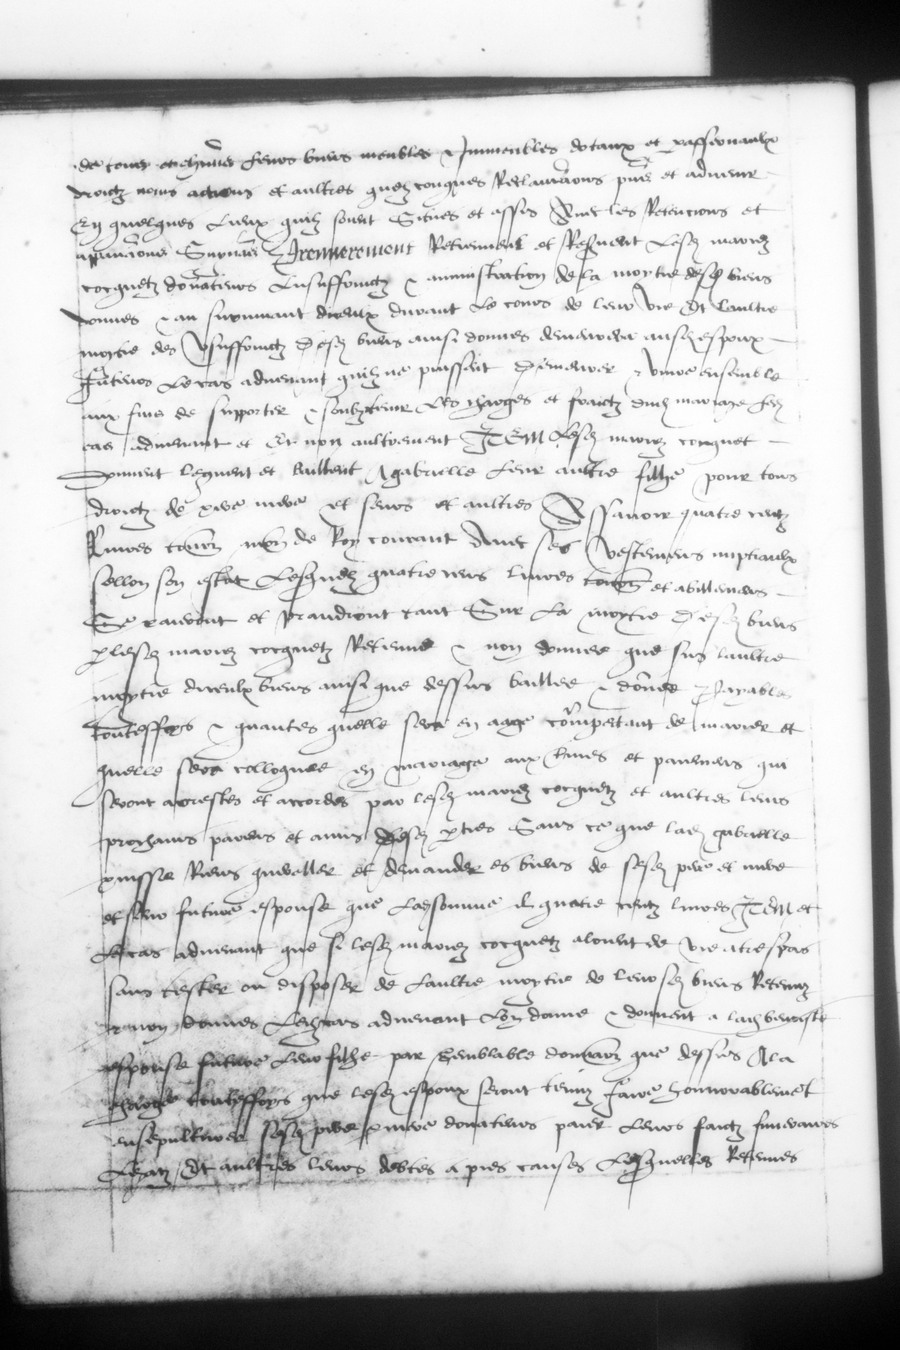 de tous et chascuns leurs biens meubles & Immeubles dotaux et
droictz noms actions et aultres quelzconques Reclamations pntes et advenir
En quelques Lieux quilz soient Situes et assis Avec les Retencions et
Premierement Retiennent et Reservent Lesd mariez
cocquetz donateurs Lusuffruictz & aministration de la moytie desd biens
donnes & au survivant diceulx durant Le cours de leur vie Et Laultre
moytie des Usuffruictz Desd biens ainsi donnes demeurera ausd espoux
futeurs Le cas advenant quilz ne puissent Demeurer & vivre ensemble
aux fins de supporter & soubztenir Les charges et fraictz dud mariage led
cas advenant et Et non aultrement ITEM Lesd mariez cocquet
Donnent leguent et baillent A gabrielle Leur aultre filhe pour tous
droictz de pere mere et seurs et aultres Assavoir quatre centz
Livres tourn mon de Roy courant Avec ses Vestemens nuptiaulx
sellon son estat Lesquelz quatre cens livres tourn et abillemens
Se et prandront tant Sur La moytie Desd biens
p lesd mariez cocquetz Retenue & non donnee que sus laultre
moytie diceulx biens ainsi que dessus baillee & donee Payables
touteffoys & quantes quelle sera en aage competant de marier et
quelle sera colloquee en mariage aux tmes et paiemens qui
seront arrestes et accordes par lesd mariez cocquetz et aultres leurs
prochains parens et amis desd pties Sans ce que lad gabrielle
puisse Riens quereller et demander es biens de sesd pere et mere
et seur future espouse que Lad somme de quatre centz livres ITEM et
Le cas advenant que si lesd mariez cocquetz aloient de vie a trespas
sans tester ou disposer de Laultre moytie de leursd biens Retenuz
& non donnes Led cas advenant Len donne & donnent a lad
espouse future Leur filhe par semblable donnaon que dessus A la
charge touteffoys que lesd espoux seront tenuz faire honnorablement
ensepulturer sesd pere & mere donateurs paier Leurs faictz funeraires
Legatz Et aultres leurs debtes a pies causes Lesquelles Retenues